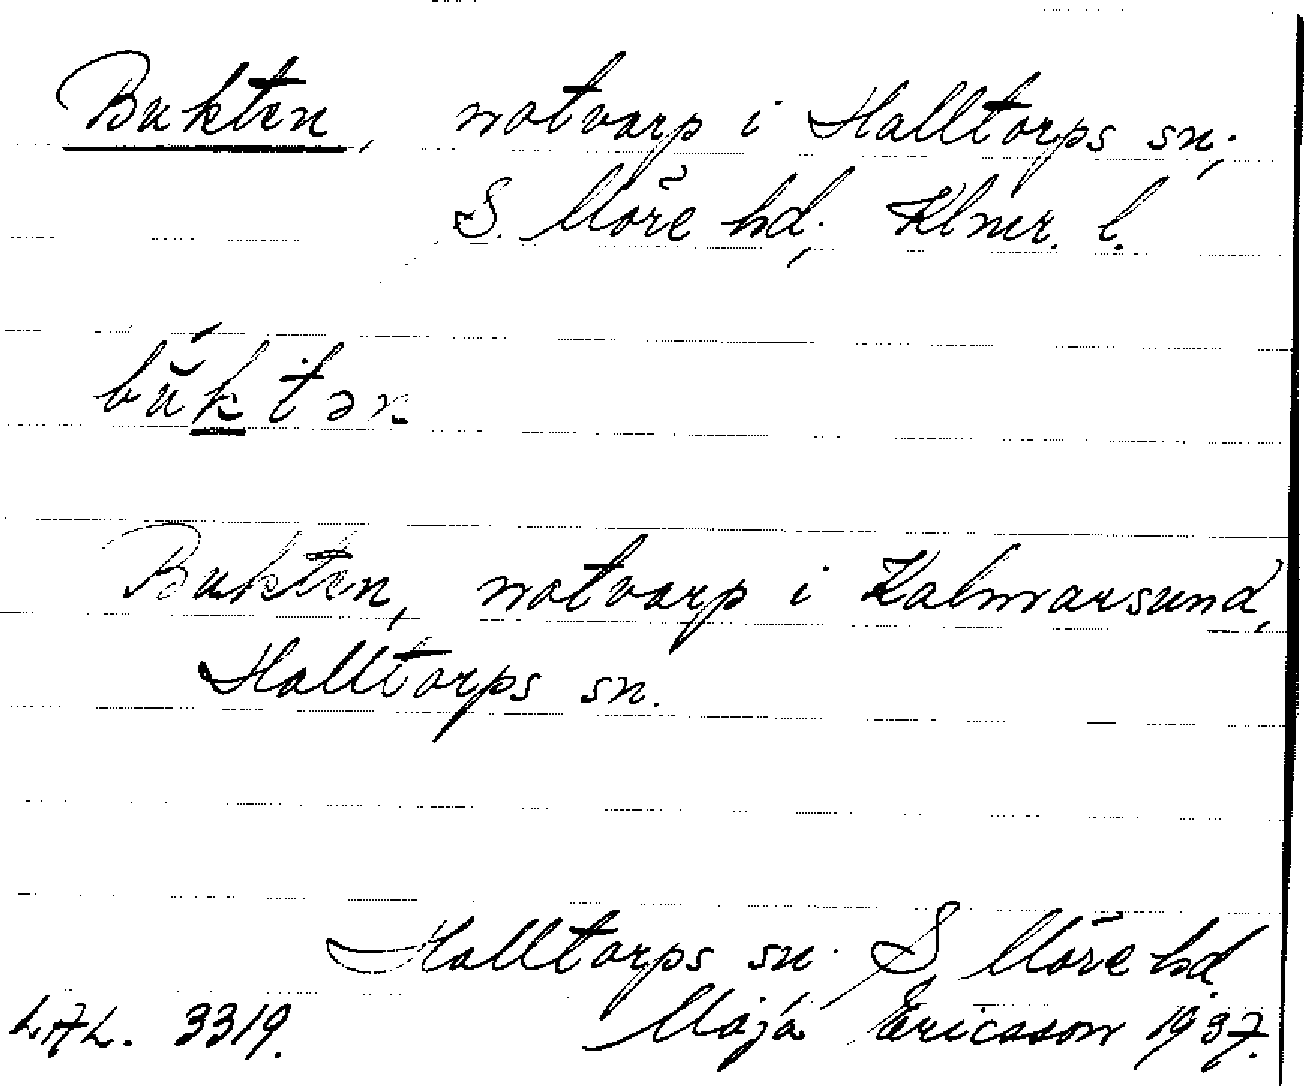 Bukten, notvarp i Halltorps sn.,
S. Möre hd., Klmr. l.
bŭ́ktən
Bukten, notvarp i Kalmarsund,
Halltorps sn.
Halltorps sn. S. Möre hd.
LAL. 3319. Maja Ericsson 1937.